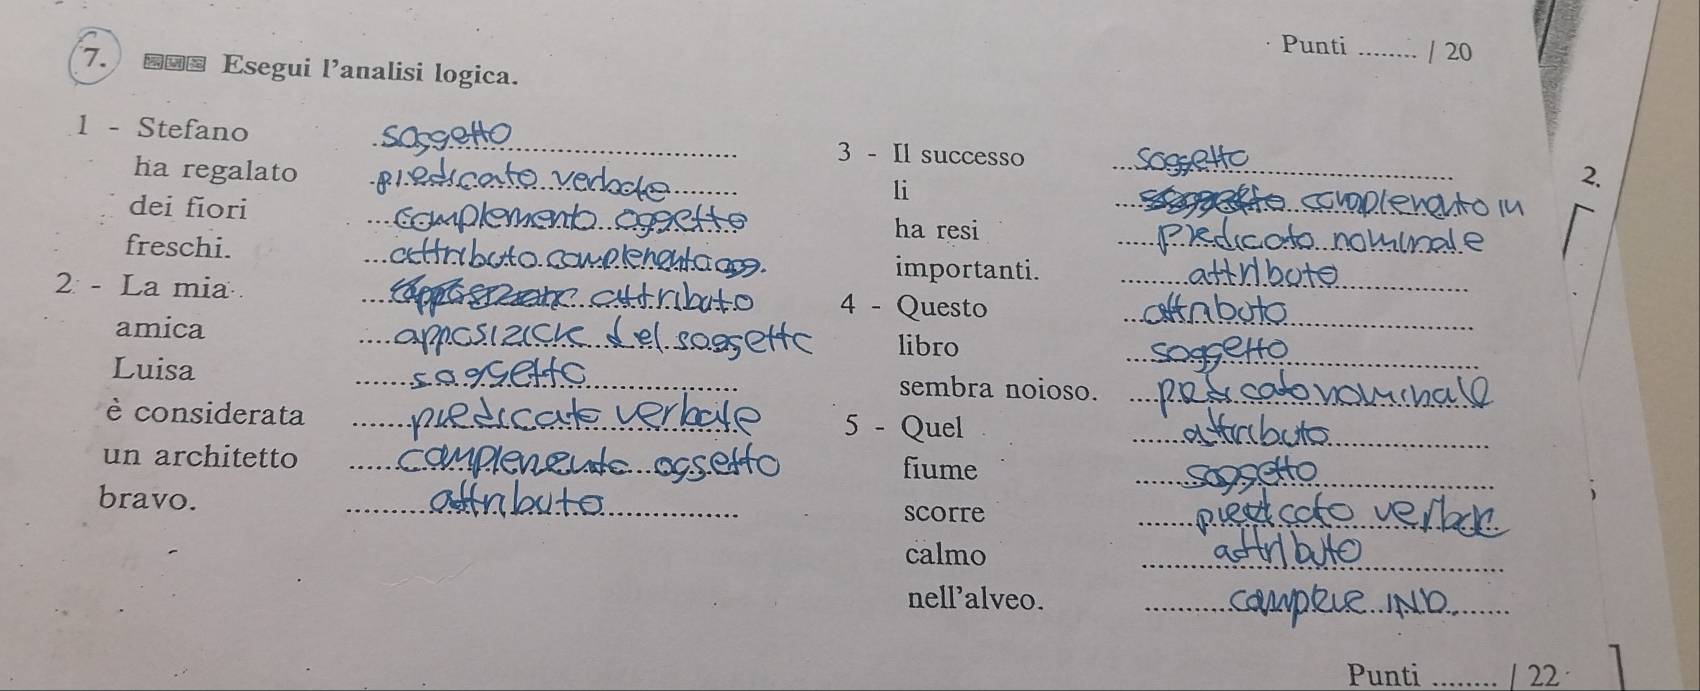 Punti ........ / 20
7. Esegui l'analisi logica.
1 - Stefano soggetto
ha regalato predicato verbale
dei fiori complemento oggetto
freschi. attributo complemento ogg.
2 - La mia attributo
amica apposizione del soggetto
Luisa soggetto
è considerata predicato verbale
un architetto complemento oggetto
bravo. attributo
3 - Il successo soggetto
li complemento in
ha resi predicato nominale
importanti. attributo
4 - Questo attributo
libro soggetto
sembra noioso. predicato nominale
5 - Quel attributo
fiume soggetto
scorre predicato
calmo attributo
nell'alveo. IND.
2.
Punti ........ / 22